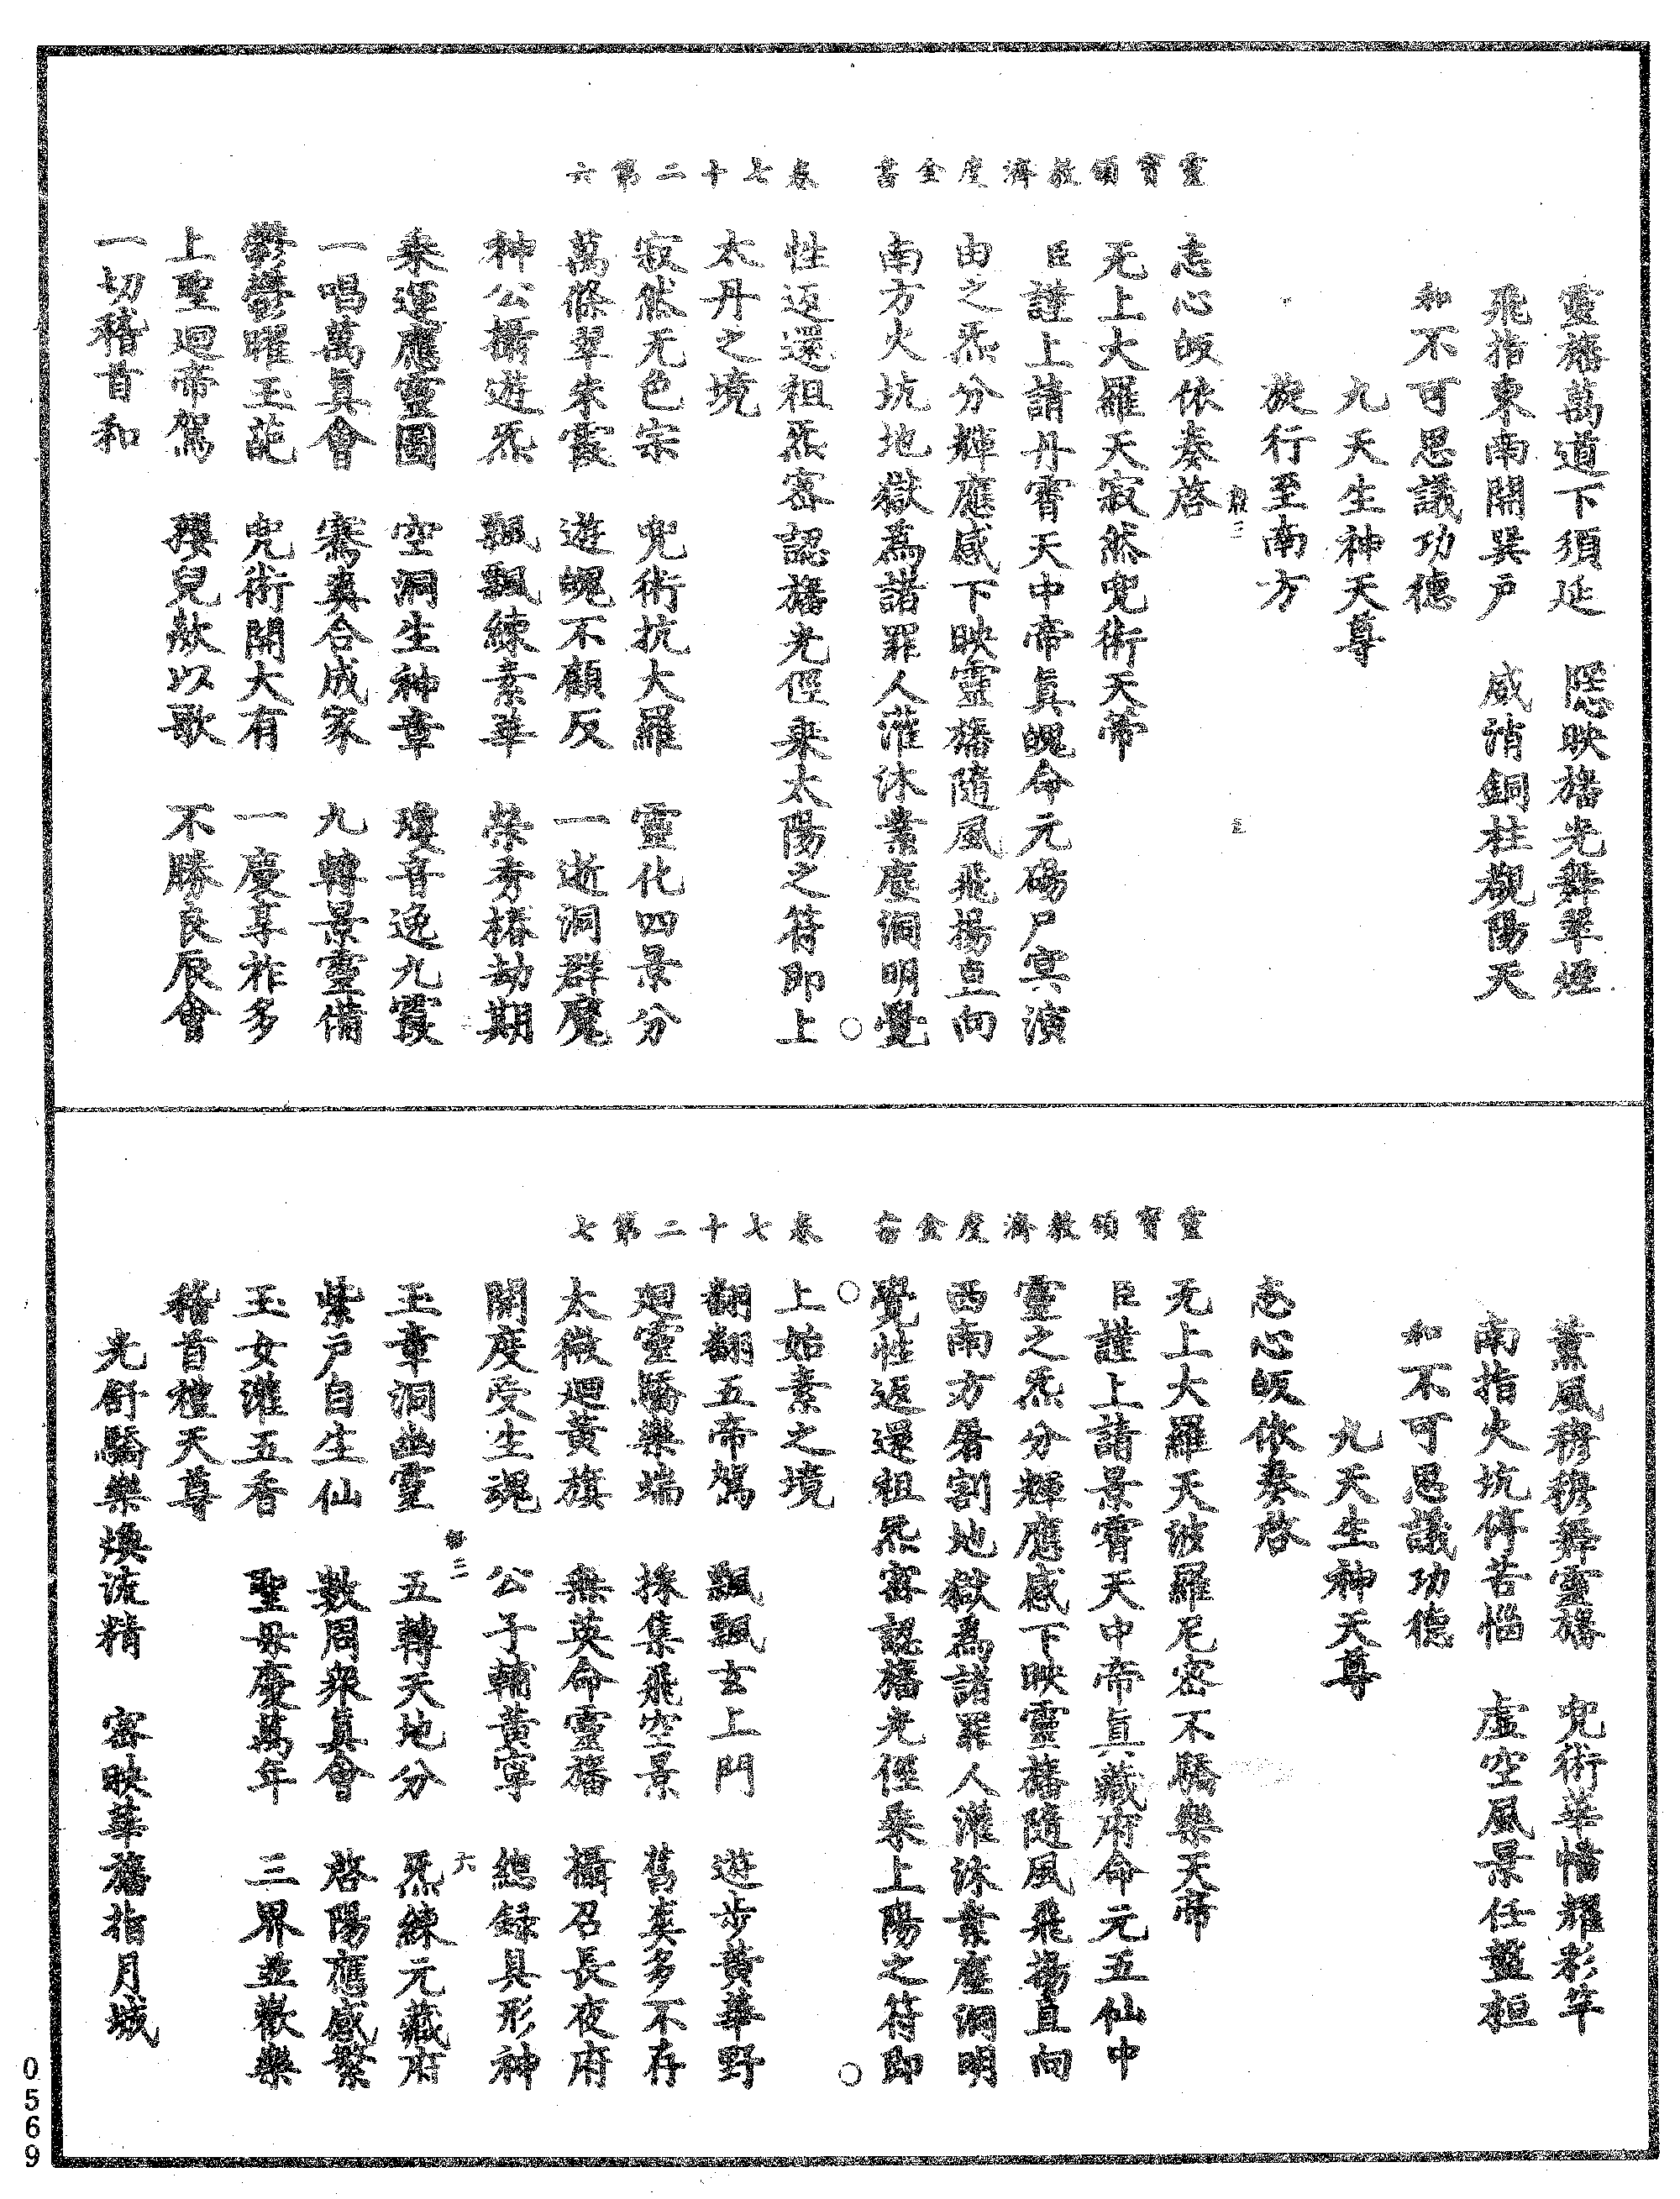 靈寶領教濟度金書　卷七十二第六
靈旛萬道下須延　隱映旛光舞翠煙
飛指東南開巽戶　威消銅柱覩陽天
和不可思議功德
九天生神天尊
旋行至南方
志心皈依奏啓
无上大羅天寂然兜術天帝
臣謹上請丹霄天中帝真魄命元碭尸冥演
由之炁分輝應感下映靈旛隨風飛揚直向
南方火坑地獄爲諸罪人灌沐業塵洞明覺
○
性返還祖炁密認旛光徑乗太陽之符即上
太丹之境
寂然无色宗　兜術抗大羅　靈化四景分
萬條翠朱霞　遊魄不顧反　一逝洞群魔
神公攝遊炁　飄飄練素華　榮秀椿劫期
乗運應靈圖　空洞生神章　瓊音逸九霞
一唱萬真會　騫爽合成家　九轉景靈備
鬱鬱曜玉葩　兜術開大有　一慶享祚多
上聖迴帝駕　孾兒歘以歌　不勝良辰會
一切稽首和
靈寶領教濟度金書　卷七十二第七
薰風穆穆舞靈旛　兜術華幡耀彩竿
南指火坑停苦惱　虛空風景任盤桓
和不可思議功德
九天生神天尊
志心皈依奏啓
无上大羅天波羅尼密不驕樂天帝
臣謹上請景霄天中帝真藏府命元五仙中
靈之炁分輝應感下映靈旛隨風飛揚直向
西南方屠割地獄爲諸罪人灌沐業塵洞明
覺性返還祖炁密認旛光徑乗上陽之符即
○　○
上始素之境
翩翩五帝駕　飄飄玄上門　遊步黃華野
迴靈驕樂端　採集飛空景　舊爽多不存
太微迴黃旗　無英命靈旛　攝召長夜府
開度受生魂　公子輔黃寧　總録具形神
玉章洞幽靈　五轉天地分　炁練元藏府
紫戶自生仙　數周衆真會　啓陽應感繁
玉女灌五香　聖母慶萬年　三界並歡樂
稽首禮天尊
光舒驕樂煥流精　密映華旛指月城
0569